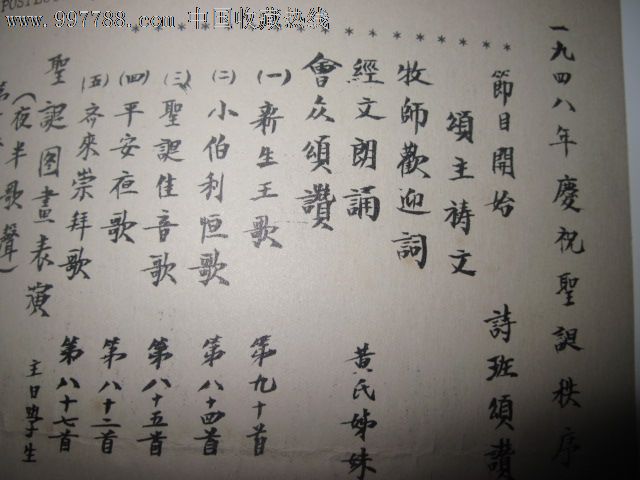 www.997788.com 中国收藏热线
一九四八年慶祝聖誕秩序
節目開始 詩班頌讚
頌主祷文
牧師歡迎詞
經文朗誦 黄氏姊妹
會众頌讚
(一) 新生王歌 第九十首
(二) 小伯利恒歌 第八十四首
(三) 聖誕佳音歌 第八十五首
(四) 平安夜歌 第八十二首
(五) 齐來崇拜歌 第八十七首
聖誕图畫表演 主日學生
(夜半歌聲)